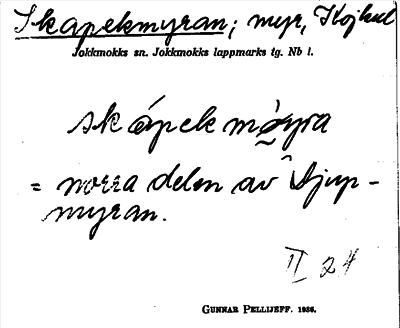 Skapekmyran; myr, Kojkul
Jokkmokks sn. Jokkmokks lappmarks tg. Nb l.
skápek mỳra
= norra delen av Djup-
myran.
II 24
GUNNAR PELLIJEFF. 1936.